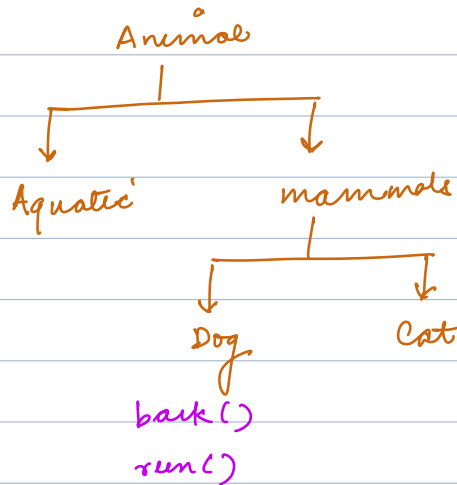 Animal
Aquatic mammals
Dog Cat
bark()
run()